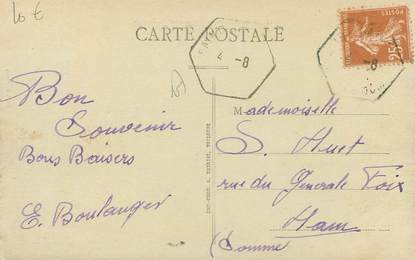 10 €
CARTE POSTALE
4 -8
-8
25c
POSTES
Bon
Souvenir
Bons Baisers
E. Boulanger
Mademoiselle
S. Huet
rue du Generale Foix
Ham
(Somme)